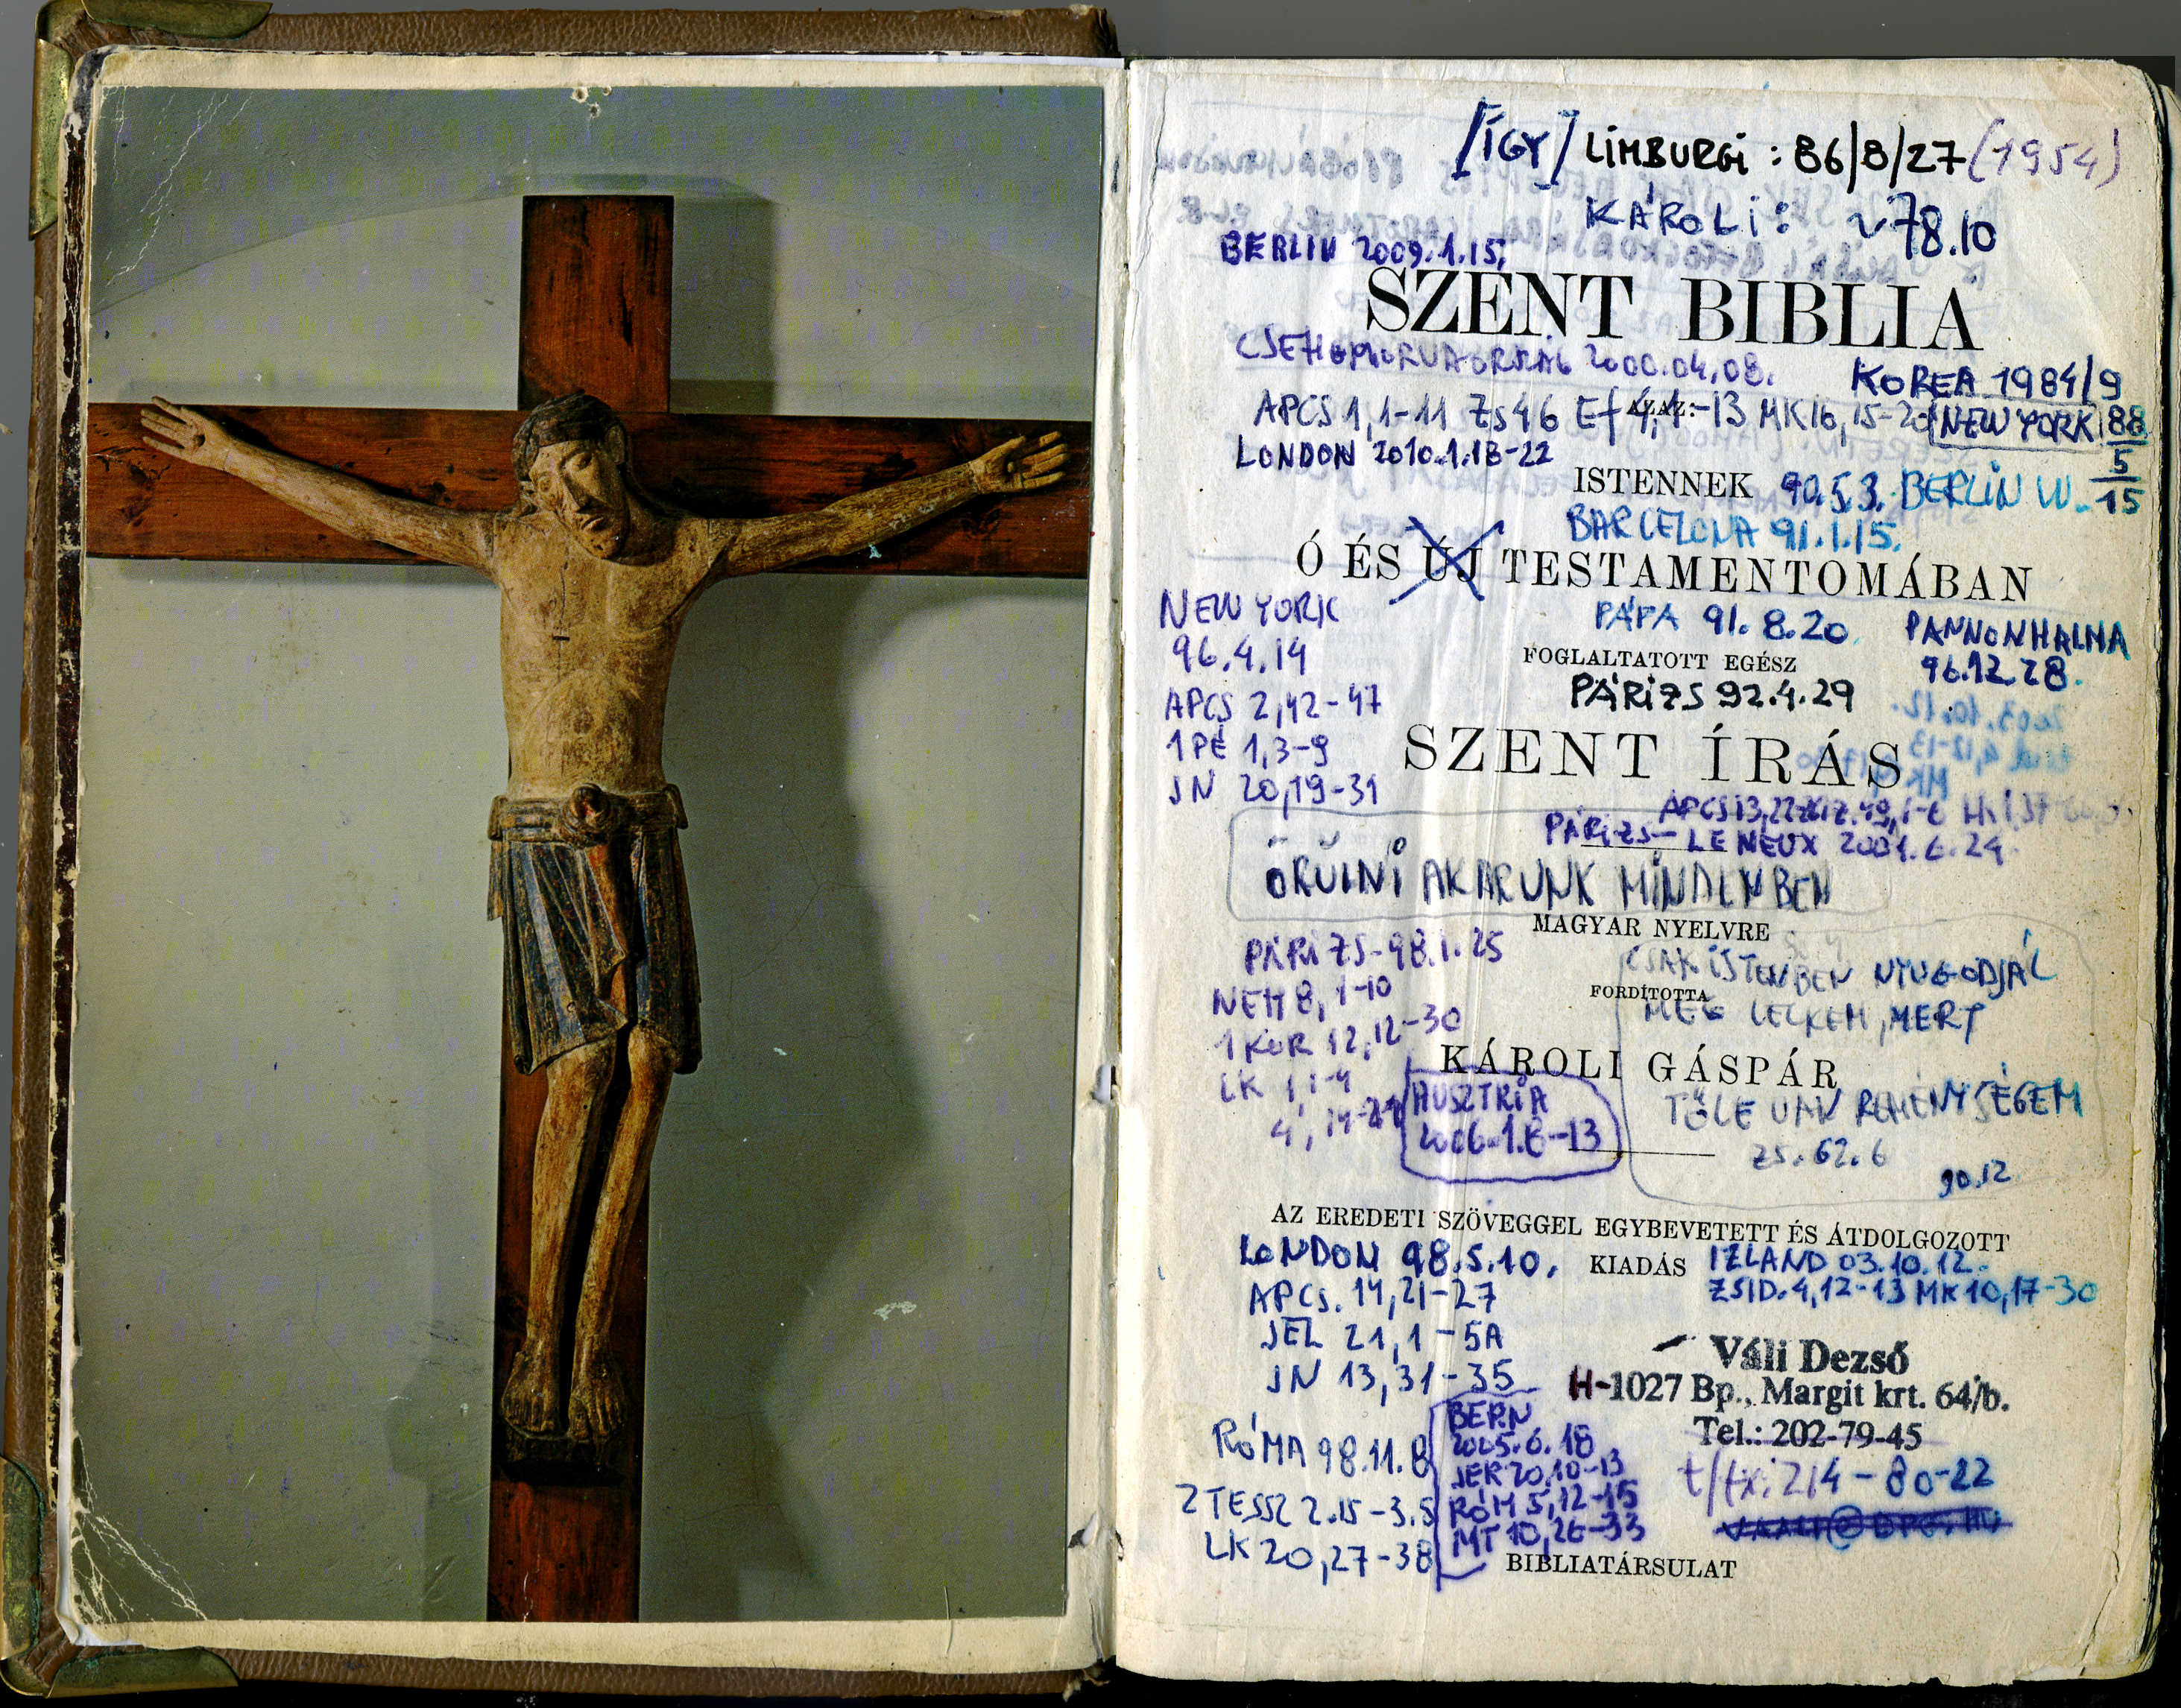 [ÍGY] LIMBURGI : 86/8/27 (1954)
KÁROLI : ~78.10
BERLIN 2009.1.15.
SZENT BIBLIA
2000.04.08.
KOREA 1984/9
AZAZ:
APCS 1,1-11 ZS 46 Ef 4,1-13 MK 16,15-20
NEW YORK 88
5
15
LONDON 2010.1.18-22
ISTENNEK
90.5.3. BERLIN W.
BARCELONA 91.1.15.
Ó ÉS ÚJ TESTAMENTOMÁBAN
NEW YORK
96.4.14
APCS 2,42-47
1 PÉ 1,3-9
JN 20,19-31
PÁPA 91.8.20.
PANNONHALMA
96.12.28.
FOGLALTATOTT EGÉSZ
PÁRIZS 92.4.29
SZENT ÍRÁS
PÁRIZS — LE NEUX 2001.6.24.
ÖRÜLNI AKARUNK MINDENBEN
MAGYAR NYELVRE
PÁRIZS-98.1.25
NEH 8, 1-10
1 KOR 12,12-30
LK 1,1-4
4, 14-21
CSAK ISTENBEN NYUGODJÁL
FORDÍTOTTA
MEG LELKEM, MERT
KÁROLI GÁSPÁR
TŐLE VAN REMÉNYSÉGEM
ZS. 62.6
90.12
AUSZTRIA
2006.1.8-13
AZ EREDETI SZÖVEGGEL EGYBEVETETT ÉS ÁTDOLGOZOTT
KIADÁS
LONDON 98.5.10.
APCS. 14,21-27
JEL 21,1-5A
JN 13,31-35
IZLAND 03.10.12.
ZSID. 4,12-13 MK 10,17-30
Váli Dezső
H-1027 Bp., Margit krt. 64/b.
Tel.: 202-79-45
t/fx: 214-80-22
RÓMA 98.11.8
2 TESSZ 2.15-3.5
LK 20,27-38
BERN
2005.6.18
JER 20,10-13
RÓM 5,12-15
MT 10,26-33
BIBLIATÁRSULAT